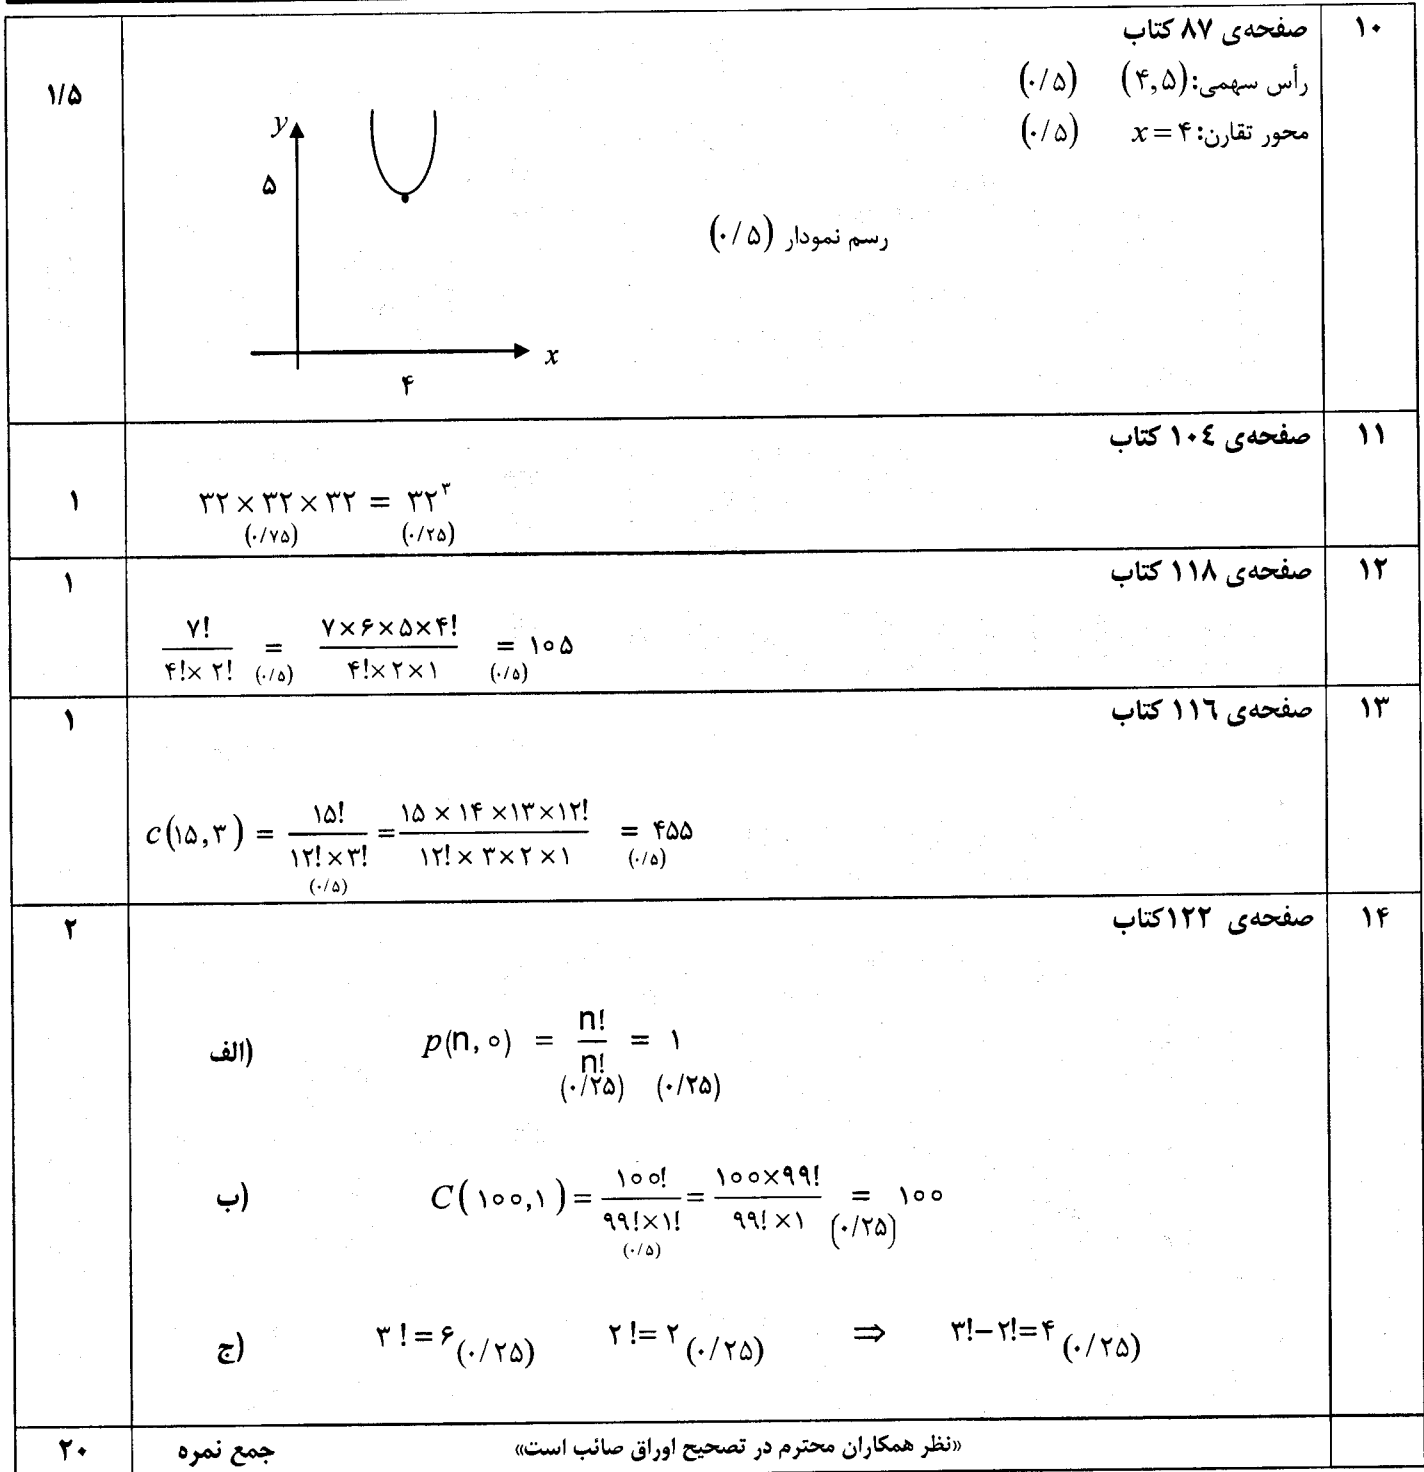 ۱۰ صفحه‌ی ۸۷ کتاب
رأس سهمی: (۴,۵) (۰/۵)
محور تقارن: x = ۴ (۰/۵)
۱/۵
y
۵
رسم نمودار (۰/۵)
x
۴
۱۱ صفحه‌ی ۱۰٤ کتاب
۳۲ × ۳۲ × ۳۲ = ۳۲^۳ ۱
(۰/۷۵) (۰/۲۵)
۱۲ صفحه‌ی ۱۱۸ کتاب ۱
۷!/(۴!× ۲!) = (۷×۶×۵×۴!)/(۴!×۲×۱) = ۱۰۵
(۰/۵) (۰/۵)
۱۳ صفحه‌ی ۱۱٦ کتاب ۱
c(۱۵,۳) = ۱۵!/(۱۲!×۳!) = (۱۵ × ۱۴ ×۱۳×۱۲!)/(۱۲!× ۳×۲ ×۱) = ۴۵۵
(۰/۵) (۰/۵)
۱۴ صفحه‌ی ۱۲۲کتاب ۲
الف) p(n,۰) = n!/n! = ۱
(۰/۲۵) (۰/۲۵)
ب) C(۱۰۰,۱) = ۱۰۰!/(۹۹!×۱!) = (۱۰۰×۹۹!)/(۹۹!×۱) = ۱۰۰
(۰/۵) (۰/۲۵)
ج) ۳!=۶ (۰/۲۵) ۲!=۲ (۰/۲۵) ⇒ ۳!−۲!=۴ (۰/۲۵)
«نظر همکاران محترم در تصحیح اوراق صائب است» جمع نمره ۲۰